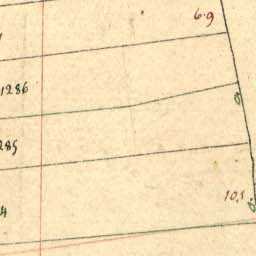 6.9
1286
285
10.5
4